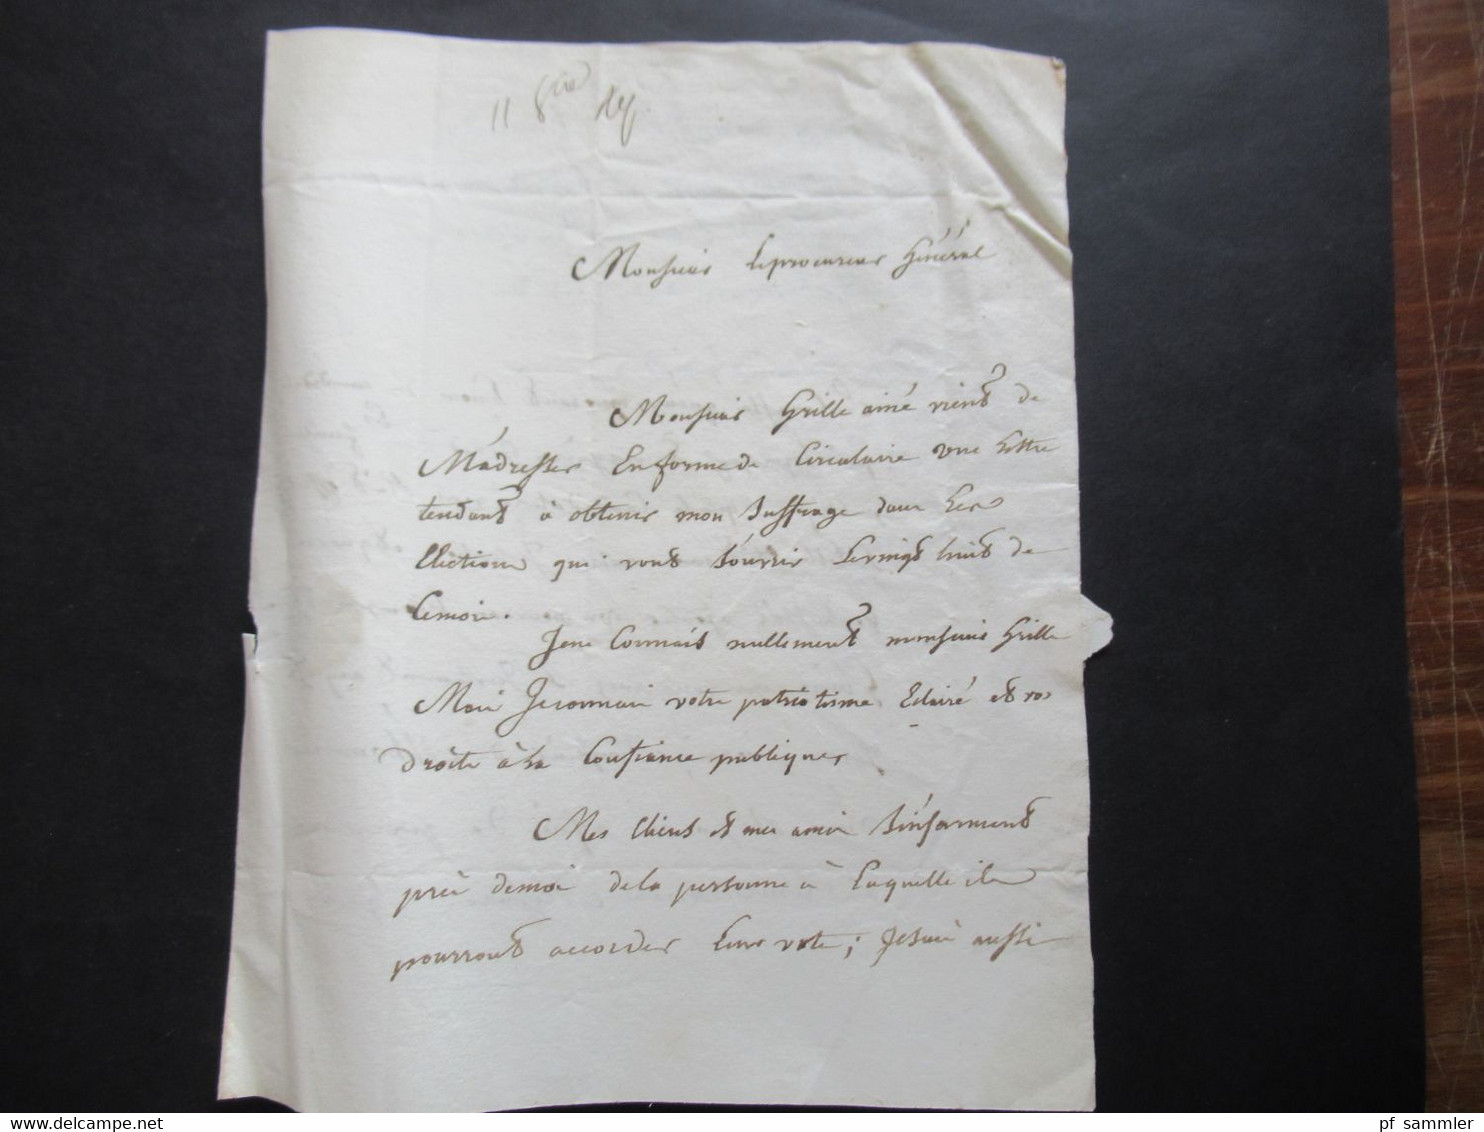 11 8bre
Monsieur Le procureur Général
Monsieur Grille ainé vient de
M'adresser En forme de Circulaire une Lettre
tendant à obtenir mon Suffrage dans Les
Elections qui vont S'ouvrir Le vingt huit de
Ce mois.
Je ne Connais nullement monsieur Grille
Mais Je connais votre patriotisme Eclairé et vos
droits à la Confiance publique
Mes Clients et mes amis S'informent
près de moi de la personne à Laquelle ils
pourront accorder Leur vote ; Je suis aussi
www.delcampe.net
pf_sammler